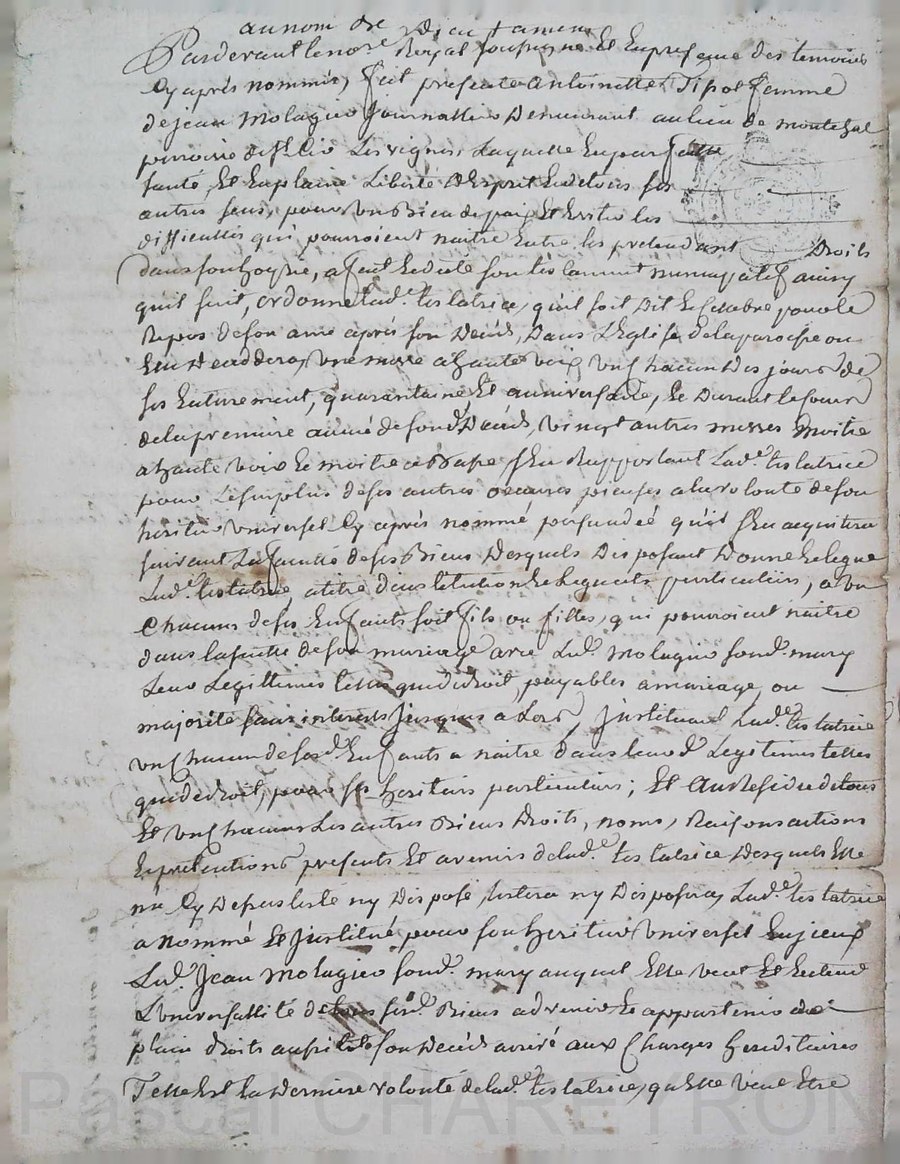 au nom de Dieu Amen
Pardevant le nore Royal soussigné Et En presence des temoins
Cy aprés nommés, fait presente Antoinette Tipol femme
de jean Molagier Journallier Demeurant au lieu de montchal
paroisse de Les vignes Laquelle En parfaitte
santé, Et En plaine Liberté d'Esprit En de tous ses
autres sens, pour Un Bien de paix Et Eviter les
difficultés qui pourroient naitre Entre les pretendant Droits
dans son hoyrie, a fait Et dicté son testament nuncupatif ainsy
quil suit, ordonne Lade testatrice, quil soit dit Et celebre pour le
Repos de son ame aprés son Decés, Dans L'Eglise de la paroisse ou
Elle Deceddera, Une messe a haute voix Un chacun Des jours de
ses Enterrement, quarantaine Et anniversaire, Et Durant le cours
de la premiere année de sond Decés, vingt autres messes moitie
a haute voix Et moitie a Basse S'En Rapportant Lade testatrice
pour Le surplus de ses autres oeuvres pieuses a la volonte de son
heritier Universel Cy aprés nommé persuadeé qu'il s'En acquittera
suivant La faculté de ses Biens Desquels Disposant Donne Et legue
Lade testatrice, a titre d'institution Et Legaats particuliers, a Un
Chacuns de ses Enfants soit fils ou filles, qui pourroient naitre
dans la suitte de son mariage avec Lud. Molagier sond. mary
Leur Legittimes telle que de droit, payables a mariage, ou
majorité sans interets jusques a Lors, Instituant Lade testatrice
Un chacun de sesd. Enfants a naitre dans leurd Legitimes telles
que de droit, pour ses heritiers particuliers; Et Au Residu de tous
Et Un chacuns Les autres Biens Droits, noms, Raisons actions
Et pretentions presents Et avenirs de lade. testatrice Desquels Elle
na Cy Dessus testé ny Disposé, testera ny Disposera, Lade testatrice
a Nommé Et Institué pour son heritier Universel Enjeux
Lud. Jean Molagier sond. mary auquel Elle veut Et Entend
L'universallité de tous sesd. Biens advenir Et appartenir de
plain droits aussitot son Decés arrivé aux Charges hereditaires
Telle Est La Derniere volonte de lade testatrice, qu'Elle veut Etre
Pascal CHAREYRON